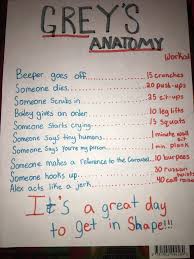 GREY'S
ANATOMY
Workout
Beeper goes off......15 crunches
Someone dies......20 push-ups
Someone Scrubs in......25 sit-ups
Bailey gives an order......10 leg lifts
Someone starts crying......15 squats
Someone Says tiny humans......1 minute wall sit
Someone Says You're my person......1 min. plank
Someone makes a reference to the Carousel...10 burpees
Someone hooks up......30 russian twists
Alex acts like a jerk......40 calf raises
It's a great day
to get in Shape!!!